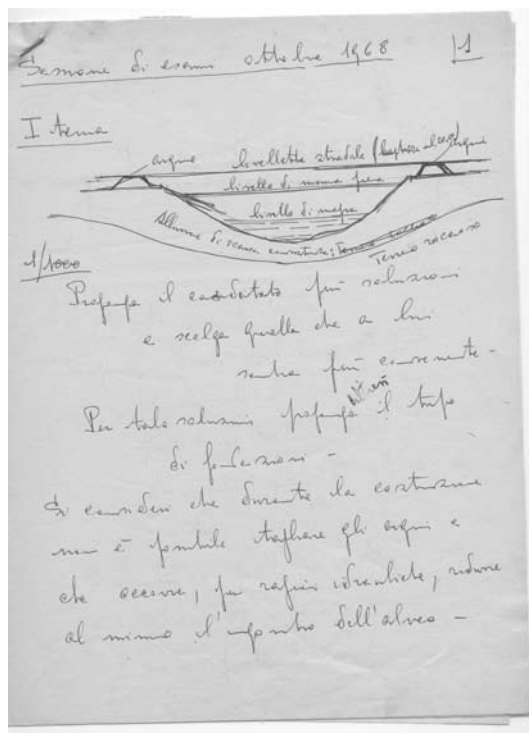 Sessione di esami ottobre 1968
1
I tema
argine
livelletta stradale
argine
livello di massima piena
livello di magra
Alluvione di scarsa consistenza;
Terreno roccioso
1/1000
Proponga il candidato più soluzioni
e scelga quella che a lui
sembra più conveniente -
altresì
Per tale soluzione proponga il tipo
di fondazioni -
Si consideri che durante la costruzione
non è possibile tagliare gli argini e
che occorre, per ragioni idrauliche, ridurre
al minimo l'ingombro dell'alveo -